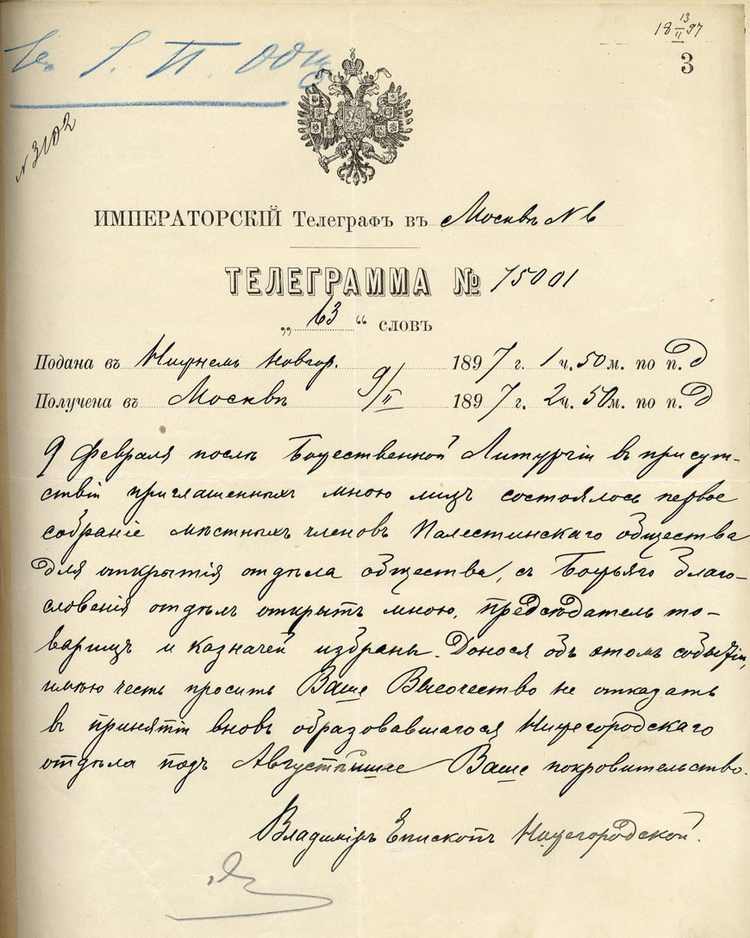 18 13/II 97
3
П. Общ
№ 3102
ИМПЕРАТОРСКІЙ Телеграфъ въ Москвѣ №
ТЕЛЕГРАММА № 75001
„ 63 “ словъ
Подана въ Нижнемъ Новгор. 1897 г. 1 ч. 50 м. по п. Д
Получена въ Москвѣ 9/II 1897 г. 2 ч. 50 м. по п. Д
9 февраля послѣ Божественной Литургіи въ присут-
ствіи приглашенныхъ мною лицъ состоялось первое
собраніе мѣстныхъ членовъ Палестинскаго общества
для открытія отдѣла общества, съ Божьяго благо-
словенія отдѣлъ открытъ мною, предсѣдатель то-
варищъ и казначей избраны. Донося объ этомъ событіи,
имѣю честь просить Ваше Высочество не отказать
въ принятіи вновь образовавшагося Нижегородскаго
отдѣла подъ Августѣйшее Ваше покровительство.
Владиміръ Епископъ Нижегородской.